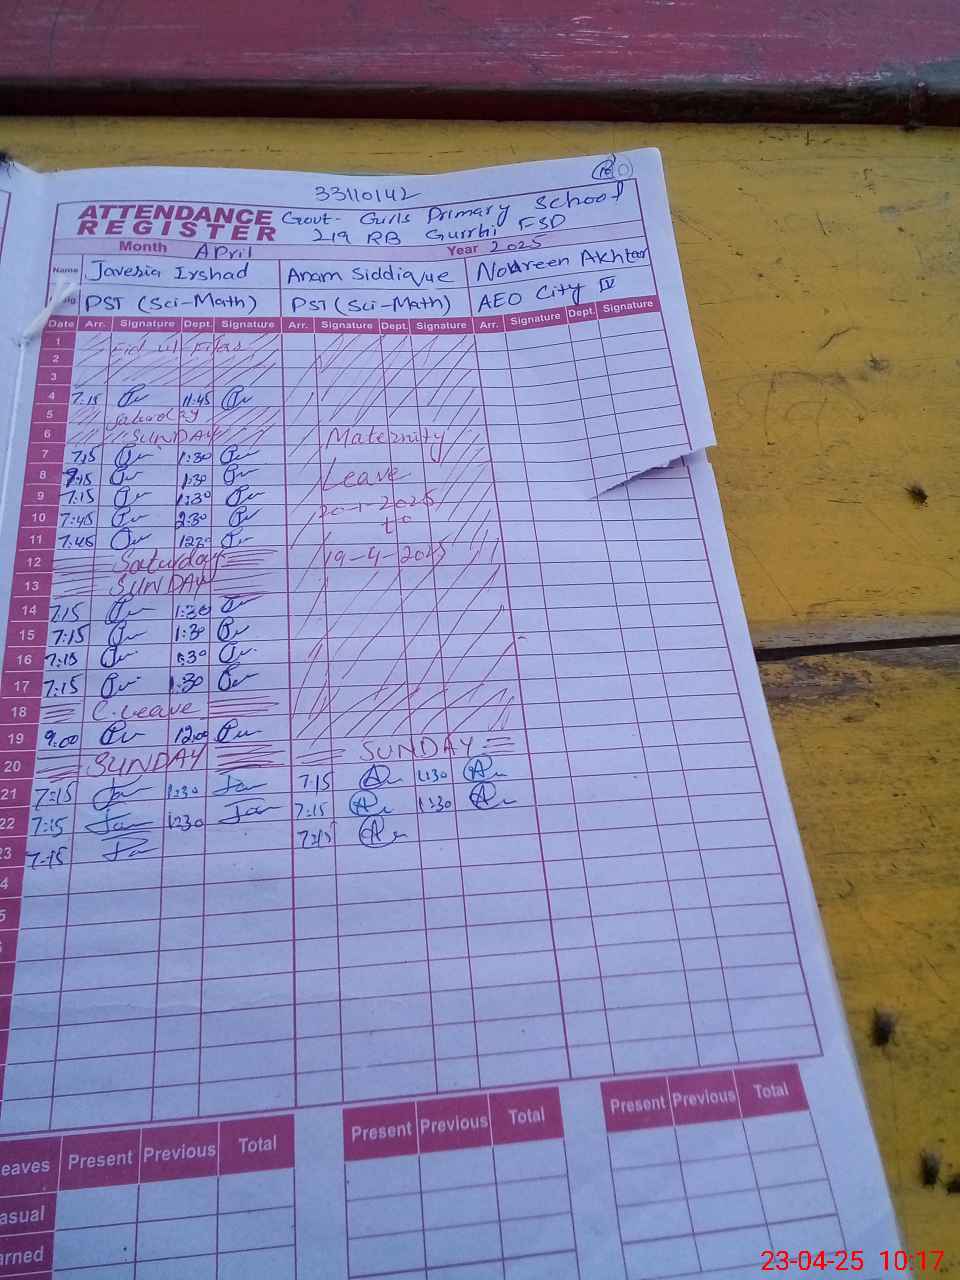 33110142
10
ATTENDANCE REGISTER
Govt- Girls Primary School
219 RB Gurrhi FSD
Month April Year 2025
Name Javeria Irshad Anam Siddique Noureen Akhtar
PST (Sci-Math) PST (Sci-Math) AEO City IV
Date Arr. Signature Dept. Signature Arr. Signature Dept. Signature Arr. Signature Dept. Signature
1 Eid ul Fitar
2
3
4 7:15 11:45
5 Saturday
6 SUNDAY Maternity
7 7:15 1:30
8 7:15 1:30 Leave
9 7:15 1:30 20-1-2025
10 7:45 2:30 to
11 7:45 12:30 19-4-2025
12 Saturday
13 SUNDAY
14 7:15 1:30
15 7:15 1:30
16 7:15 1:30
17 7:15 1:30
18 C.Leave
19 9.00 12:00
20 SUNDAY SUNDAY
21 7:15 1:30 7:15 1:30
22 7:15 1:30 7:15 1:30
23 7:15 7:15
4
5
eaves Present Previous Total Present Previous Total Present Previous Total
asual
arned
23-04-25 10:17